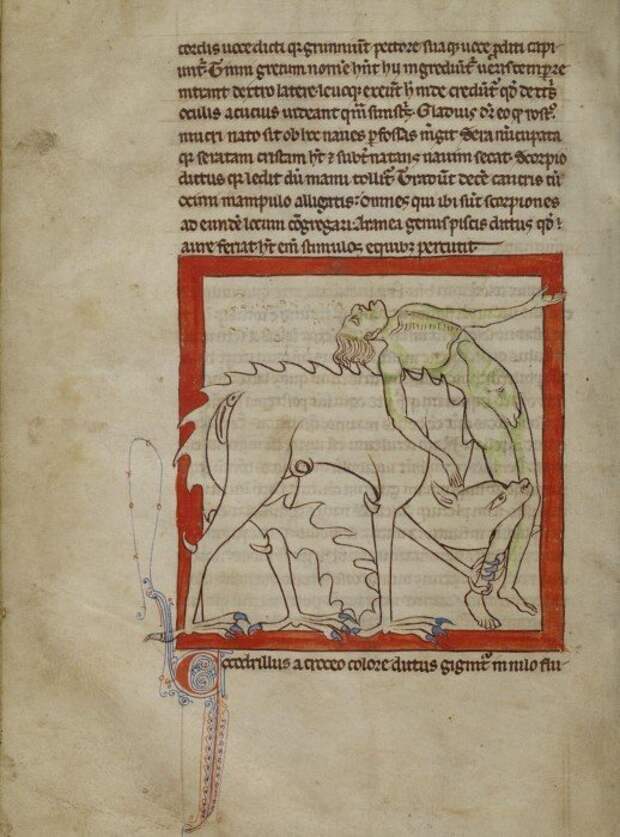 cordis uoce dicti qr grunniūt pectore sua qƺ uoce proditi capi-
unt᷑. grecum nom̄e hn̄t hii ingrediūt᷑ ueris tempore
intrant dextro latere leuoqƺ exeūt hinde credūt᷑ qd̄ dext͛s
oculis acucius uideant qm̄ sinist͛s. Gladius dr̄ eo qƺ rost͛
mucronato sit ob hoc naues perfossas m̄git Serra nūcupata
qr serratam cristam ht̄ ⁊ subt͛ natans nauim secat. Scorpio
dictus qr ledit dū manu tollit᷑. Tradunt decē cancris cū
ocimi manipulo alligatis: Omnes qui ibi sūt scorpiones
ad eundē locum cōgregari. Aranea genus piscis dictus qd̄
aure feriat ht̄ eīm stimulos e quibꝫ percutit
Cocodrillus a croceo colore dictus gignit᷑ in nilo flu-